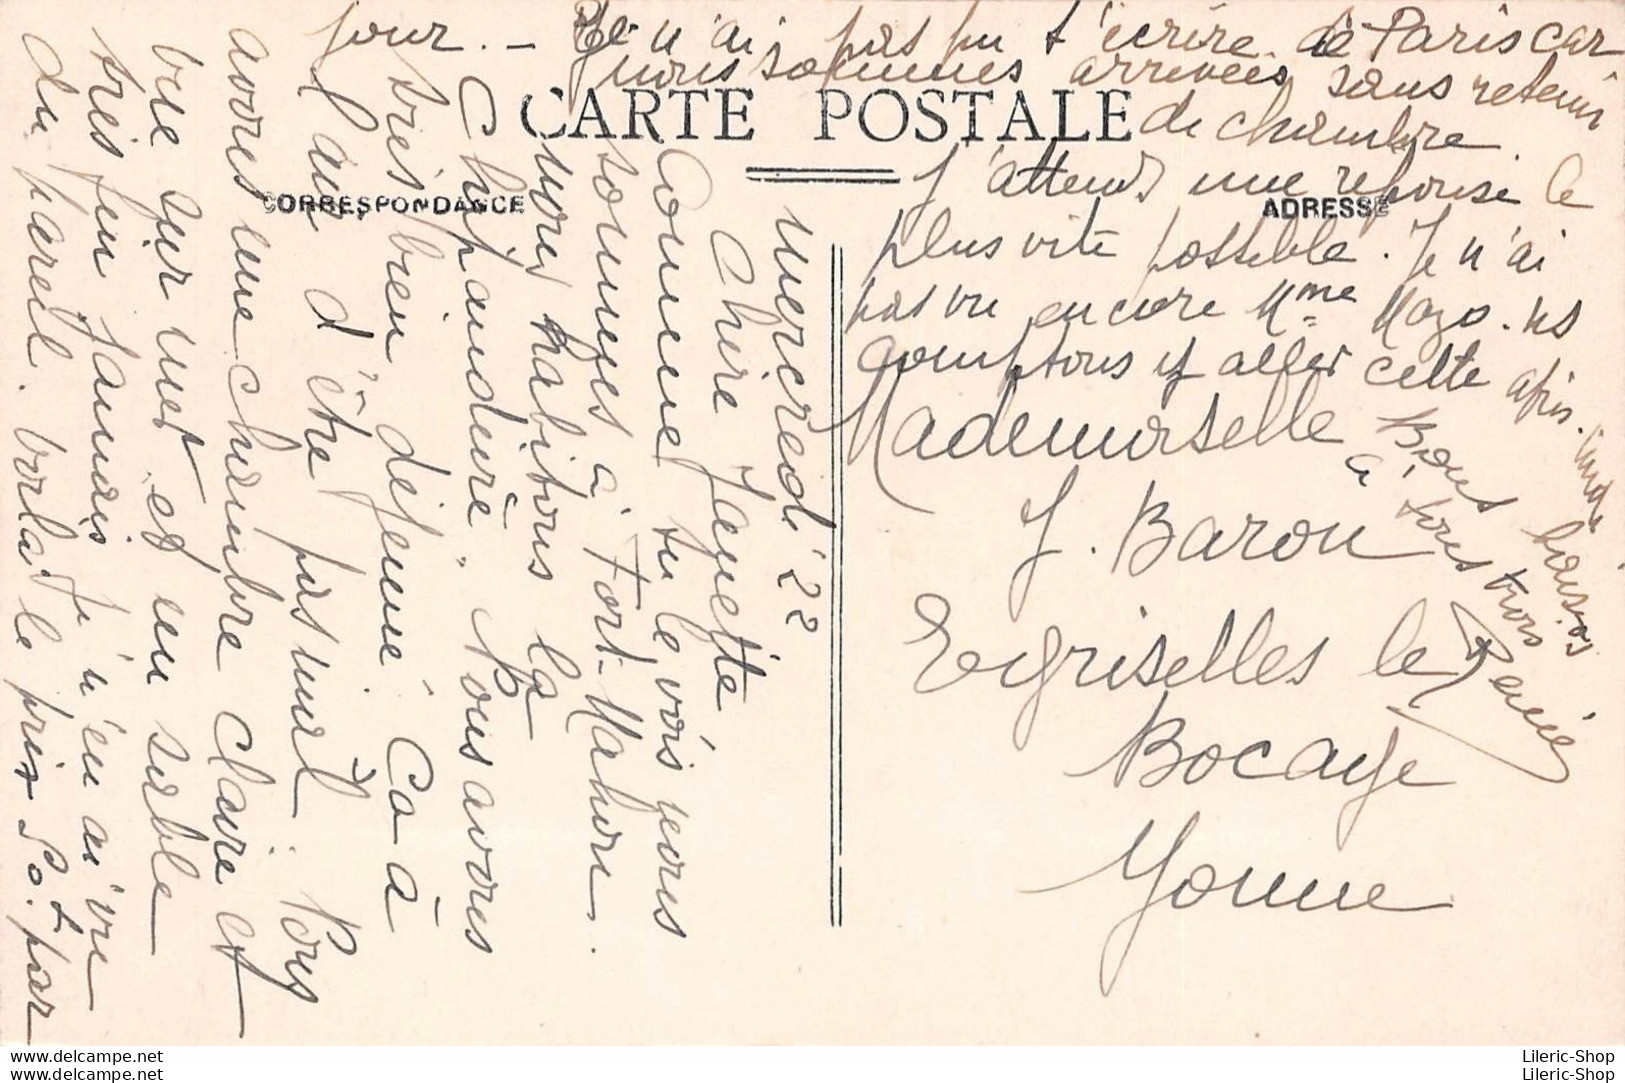 CARTE POSTALE
CORRESPONDANCE
ADRESSE
Mercredi 22
Chère Janette
Comme tu le vois nous
sommes à Fort-Mahon.
Nous habitons la
Chipaudière. Nous avons
très bien déjeuné. Ca à
l'air d'être pas mal. Nous
avons une chambre claire et
vue sur mer. et un sable
très fin jamais j'n'en ai vu
du pareil. voila le prix 50f par
jour. - Je n'ai pas pu t'écrire de Paris car
nous sommes arrivées sans retenir
de chambre.
J'attends une réponse le
plus vite possible. Je n'ai
pas vu encore Mme Mazo. ns
comptons y aller cette après.
Bons baisers
à tous trois
Renée
Mademoiselle
J. Baron
Egriselles le
Bocage
Yonne
Lileric-Shop
Lileric-Shop
www.delcampe.net
www.delcampe.net